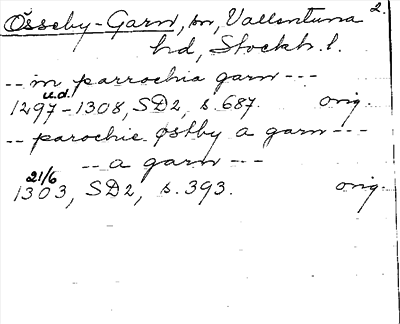 Össeby-Garn, sn, Vallentuna 2.
hd, Stockh. l.
-- in parrochia garn ---
u.d.
1297-1308, SD2, s. 687. orig.
-- parochie østby a garn ---
-- a garn ---
21/6
1303, SD2, s. 393. orig.